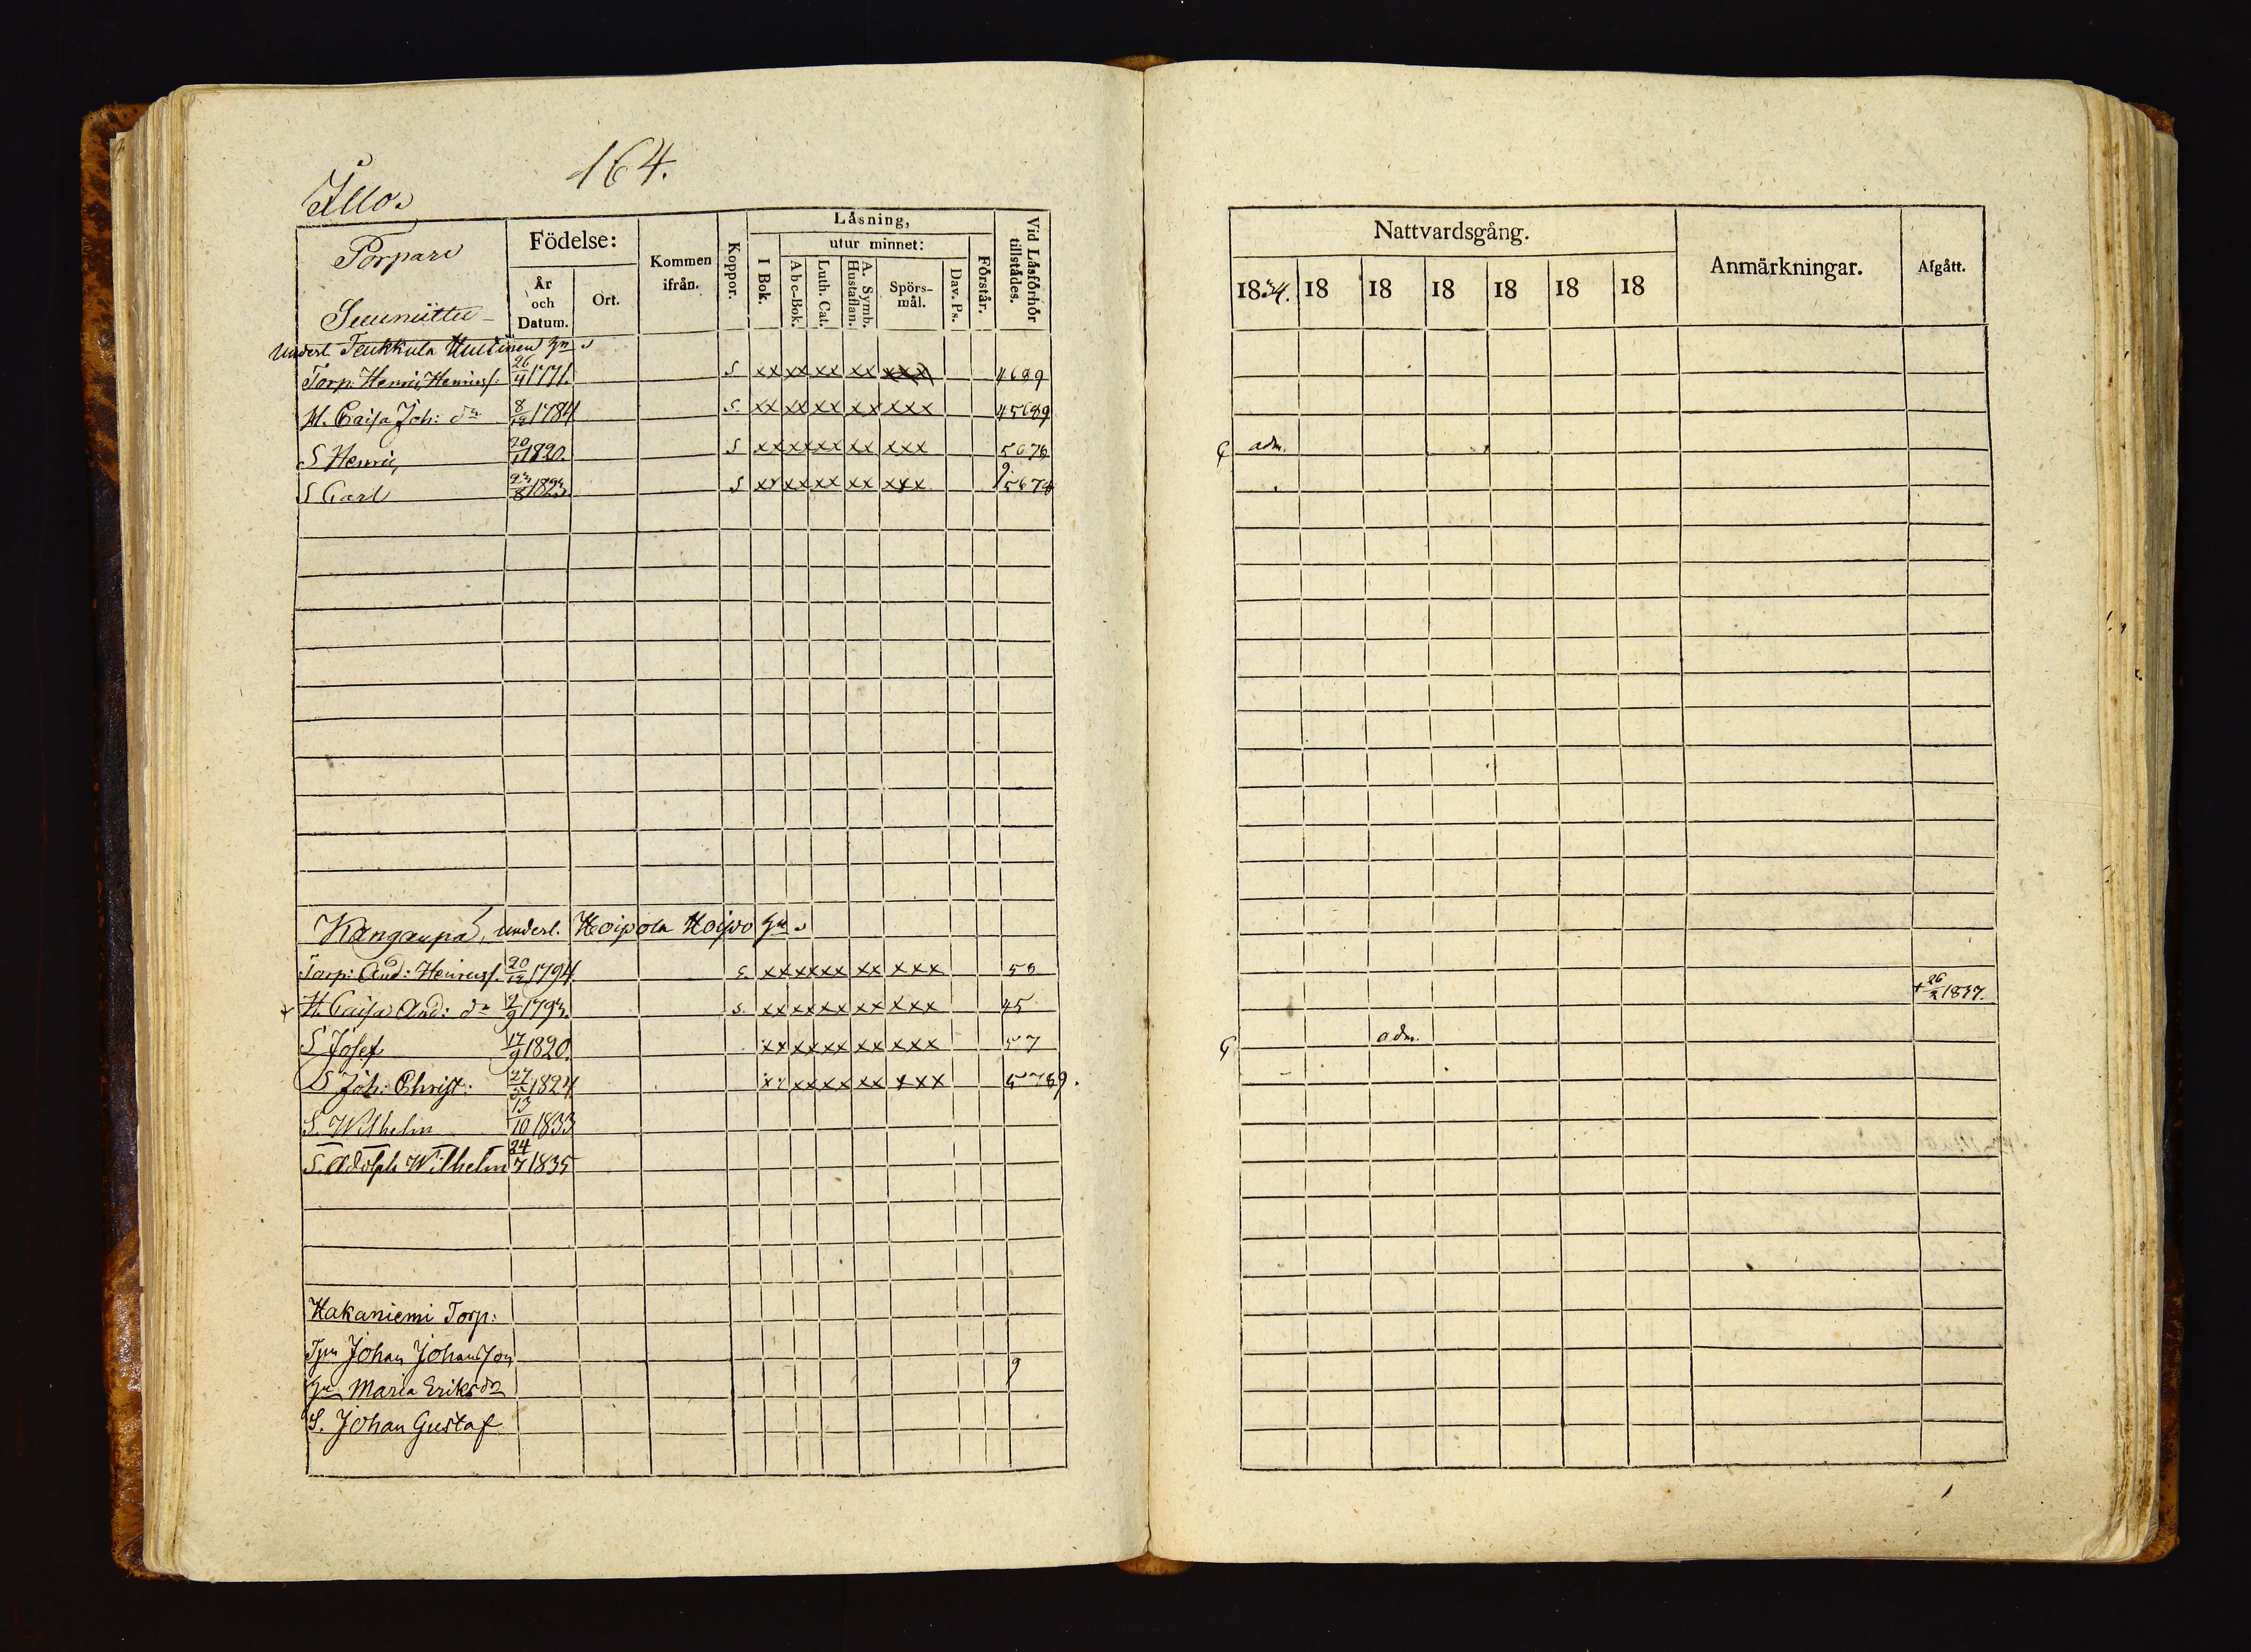 164.
Illo.
Torpare
Födelse:
År och Datum.
Ort.
Kommen ifrån.
Koppor.
Låsning,
I Bok.
utur minnet:
Abc-Bok.
Luth. Cat.
A. Symb. Hustaflan.
Spörs-mål.
Dav. Ps.
Förstår.
Vid Låsförhör tillstådes.
Underl.
Torp: Henric Henricss: 26/4 1771. S xx xx xx xx xxx 4689
H. Caisa Joh: dr 8/12 1784 S. xx xx xx xx xxx 45689
S Henric 20/1 1820. S xx xx xx xx xxx 5678
S Carl 23/8 1823. S xx xx xx xx xxx 9. 5678
Kangaupa, underl. Hoipola Hoipo
Torp: And: Henricss. 20/12 1794. S. xx xx xx xx xxx 58
+ H. Caisa And: dr 2/9 1793. S. xx xx xx xx xxx 45
S Josef 17/9 1820. xx xx xx xx xxx 57
S Joh: Christ: 27/5 1824 xx xx xx xx xxx 5789.
S. Wilhelm 13/10 1833
S. Adolph Wilhelm 24/7 1835
Hakaniemi Torp:
Tpn Johan Johansson 9
Hu Maria Eriksdr
S. Johan Gustaf
Nattvardsgång.
Anmärkningar.
Afgått.
1834. 18 18 18 18 18 18
adm.
+ 26/2 1837.
adm.